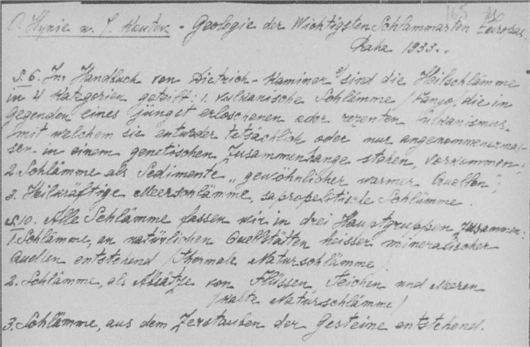 O. Hynie u. J. Klouter - Geologie der Wichtigsten Schlammarten Europas.
Praha 1933..
S. 6. Im Handbuch von Dietrich-Kaminer sind die Heilschlämme
in 4 Kategorien geteilt: 1. vulkanische Schlämme / Fango, die in
Gegenden eines jüngst erloschenen oder rezenten Vulkanismus,
mit welchem sie entweder tatsächlich oder nur angenommenermas-
sen in einem genetischen Zusammenhange stehen, vorkommen;
2. Schlämme als Sedimente „gewöhnlicher warmer Quellen";
3. Heilkräftige Meerschlämme, sapropelitische Schlämme.
S. 10. Alle Schlämme fassen wir in drei Hauptgruppen zusammen:
1. Schlämme, an natürlichen Quellstäten heisser mineralischer
Quellen entstehend / Thermale Naturschlämme /
2. Schlämme, als Absätze von Flüssen Teichen und Meeren
/ kalte Naturschlämme /
3. Schlämme, aus dem Zerstauben der Gesteine entstehend.